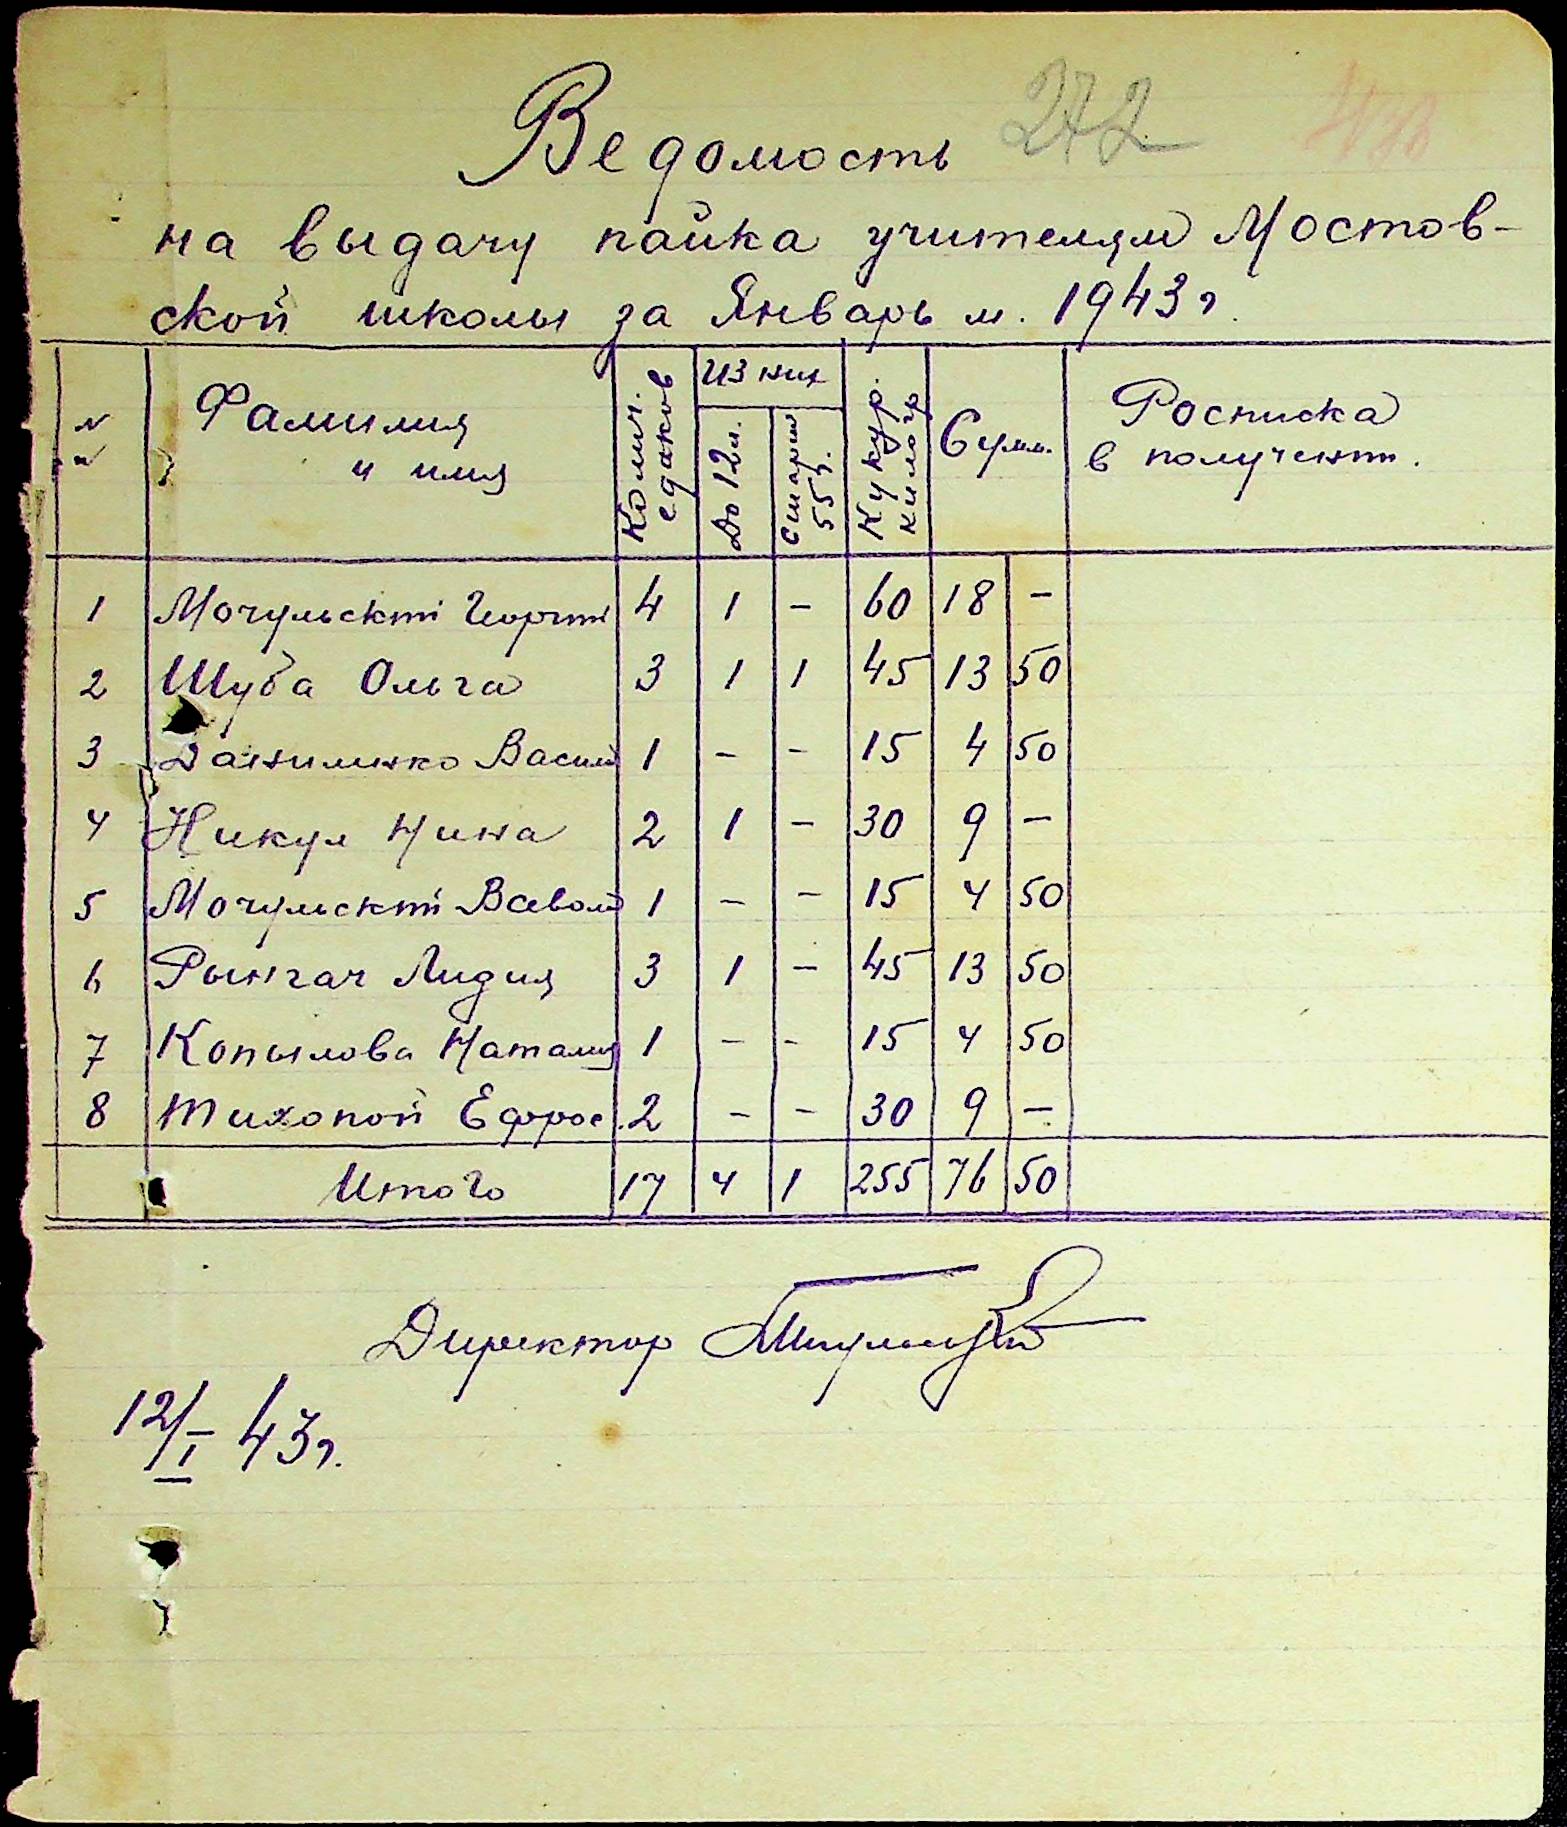 272
Ведомость
на выдачу пайка учителям Мостов-
ской школы за Январь м. 1943 г.
№ п Фамилия и имя Колич. едаков Из них До 12 л. Старш 55 г. Кукур. килогр Сумм. Росписка в получении.
1 Мочульский Георгий 4 1 - 60 18 -
2 Шуба Ольга 3 1 1 45 13 50
3 Данилинко Васил 1 - - 15 4 50
4 Никул Нина 2 1 - 30 9 -
5 Мочульский Всевол 1 - - 15 4 50
6 Рынгач Лидия 3 1 - 45 13 50
7 Копылова Наталия 1 - - 15 4 50
8 Тихопой Ефрос. 2 - - 30 9 -
Итого 17 4 1 255 76 50
Директор
12/I 43 г.